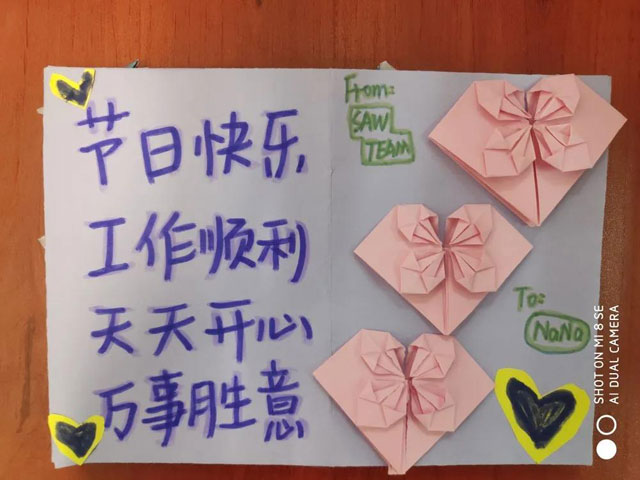 节日快乐
工作顺利
天天开心
万事胜意
From:
SAW
TEAM
To:
NaNa
SHOT ON MI 8 SE
AI DUAL CAMERA